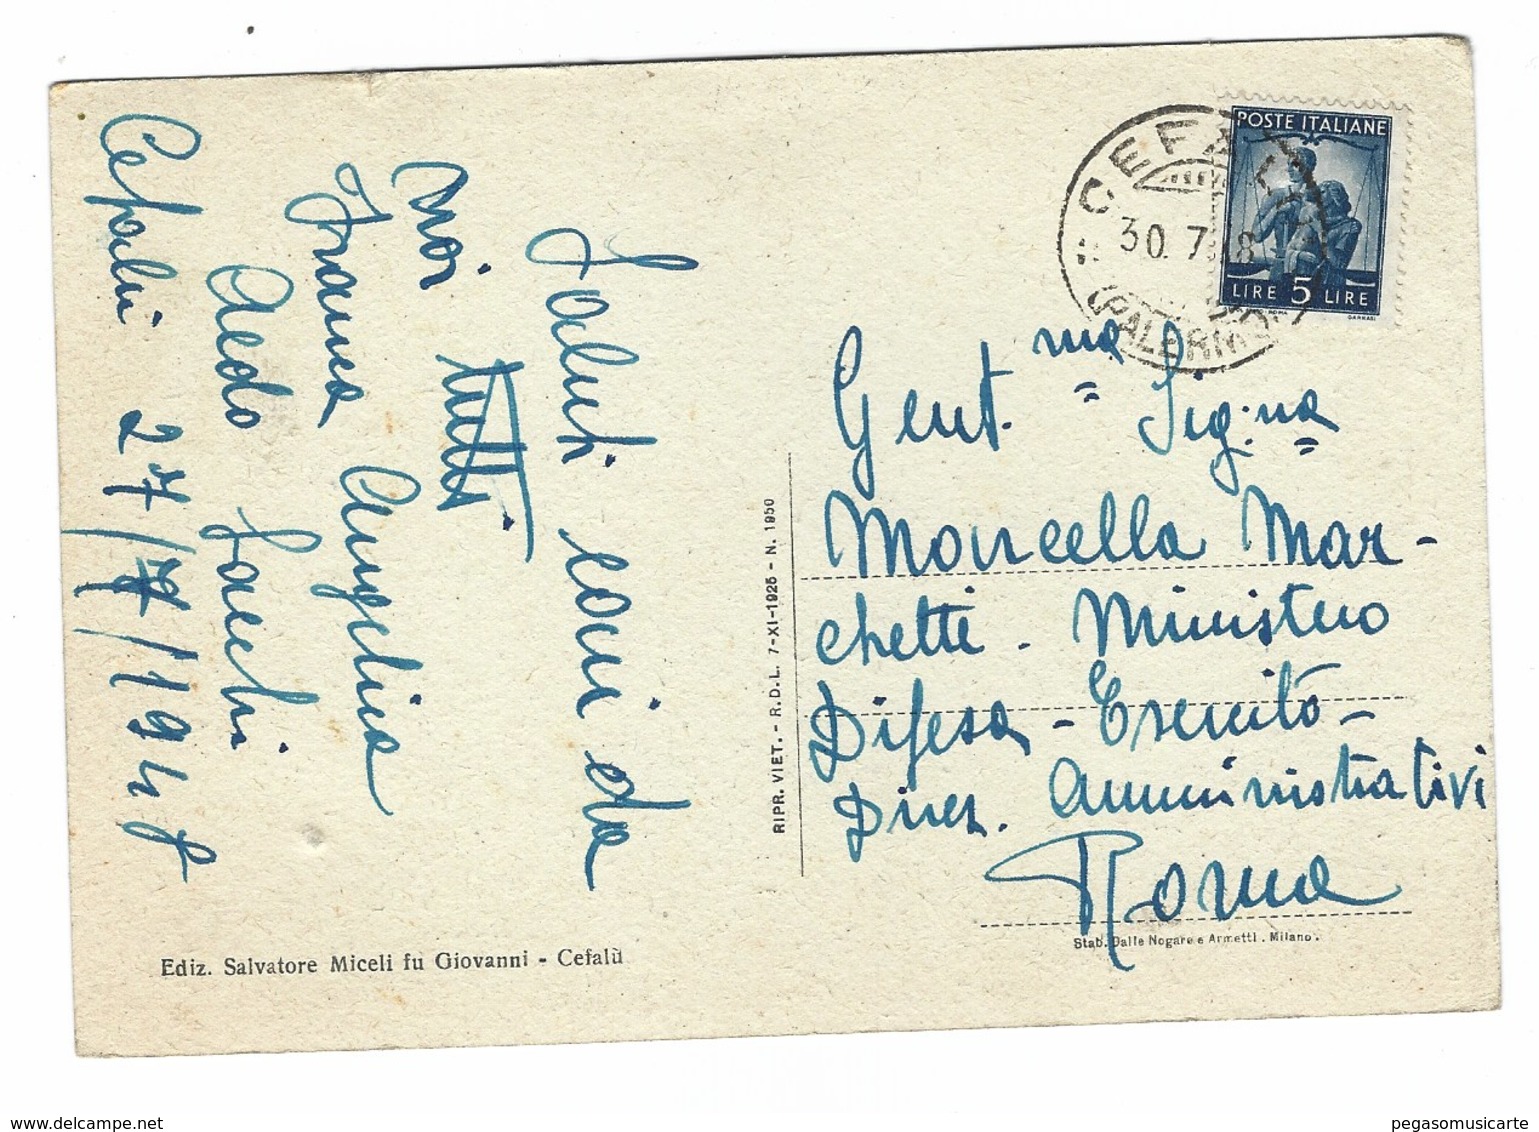 Saluti cari da
noi tutti
Franca Angelica
Aldo
Cefalù 27/7/1948
Ediz. Salvatore Miceli fu Giovanni - Cefalù
RIPR. VIET. - R.D.L. 7-XI-1925 - N. 1950
CEFALÙ
30.7.48
(PALERMO)
POSTE ITALIANE
LIRE 5 LIRE
Gent.ma Sig.na
Marcella Mar-
chetti. Ministero
Difesa - Esercito -
Direz. Amministrativi
Roma
Stab. Dalle Nogare e Armetti. Milano.
delcampe.net
pegasomusicarte